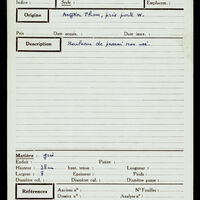 Indice : Style : Emplacem. :
Origine Angkor Thom, près porte W.
Prix Date acquis. : Date inscr. :
Description Morceau de paroi non usé.
Matière : grès
Endroit : Patine :
Hauteur : 28 cm haut. tenon : Longueur :
Largeur : 8 Epaisseur : Poids :
Diamètre col. : Diamètre panse :
Références Anciens n° : N° Feuilles :
Dossier n° : Analyse n° :